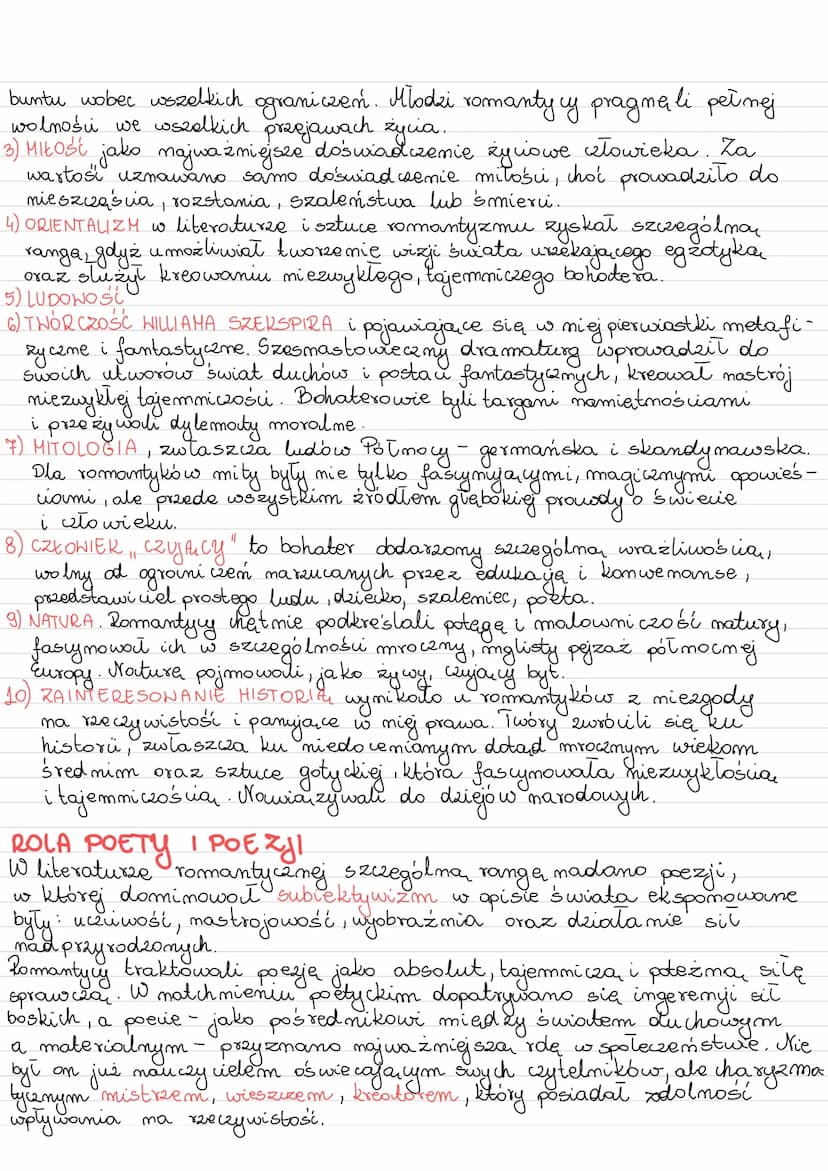 buntu wobec wszelkich ograniczeń. Młodzi romantycy pragnęli pełnej
wolności we wszelkich przejawach życia.
3) MIŁOŚĆ jako najważniejsze doświadczenie życiowe człowieka. Za
wartość uznawano samo doświadczenie miłości, choć prowadziło do
nieszczęścia, rozstania, szaleństwa lub śmierci.
4) ORIENTALIZM w literaturze i sztuce romantyzmu zyskał szczególną
rangę, gdyż umożliwiał tworzenie wizji świata urzekającego egzotyką
oraz służył kreowaniu niezwykłego, tajemniczego bohatera.
5) LUDOWOŚĆ
6) TWÓRCZOŚĆ WILLIAMA SZEKSPIRA i pojawiające się w niej pierwiastki metafi-
zyczne i fantastyczne. Szesnastowieczny dramaturg wprowadził do
swoich utworów świat duchów i postaci fantastycznych, kreował nastrój
niezwykłej tajemniczości. Bohaterowie byli targani namiętnościami
i przeżywali dylematy moralne.
7) MITOLOGIA, zwłaszcza ludów Północy - germańska i skandynawska.
Dla romantyków mity były nie tylko fascynującymi, magicznymi opowieś-
ciami, ale przede wszystkim źródłem głębokiej prawdy o świecie
i człowieku.
8) CZŁOWIEK „CZUJĄCY" to bohater obdarzony szczególną wrażliwością,
wolny od ograniczeń narzucanych przez edukację i konwenanse,
przedstawiciel prostego ludu, dziecko, szaleniec, poeta.
9) NATURA. Romantycy chętnie podkreślali potęgę i malowniczość natury,
fascynował ich w szczególności mroczny, mglisty pejzaż północnej
Europy. Naturę pojmowali, jako żywy, czujący byt.
10) ZAINTERESOWANIE HISTORIĄ wynikało u romantyków z niezgody
na rzeczywistość i panujące w niej prawa. Twórcy zwrócili się ku
historii, zwłaszcza ku niedocenianym dotąd mrocznym wiekom
średnim oraz sztuce gotyckiej, która fascynowała niezwykłością
i tajemniczością. Nawiązywali do dziejów narodowych.
ROLA POETY I POEZJI
W literaturze romantycznej szczególną rangę nadano poezji,
w której dominował subiektywizm w opisie świata eksponowane
były: uczciwość, nastrojowość, wyobraźnia oraz działanie sił
nadprzyrodzonych.
Romantycy traktowali poezję jako absolut, tajemniczą i potężną siłę
sprawczą. W natchnieniu poetyckim dopatrywano się ingerencji sił
boskich, a poecie - jako pośrednikowi między światem duchowym
a materialnym - przyznano najważniejszą rolę w społeczeństwie. Nie
był on już nauczycielem oświecającym swych czytelników, ale charyzma
tycznym mistrzem, wieszczem, kreatorem, który posiadał zdolność
wpływania na rzeczywistość.